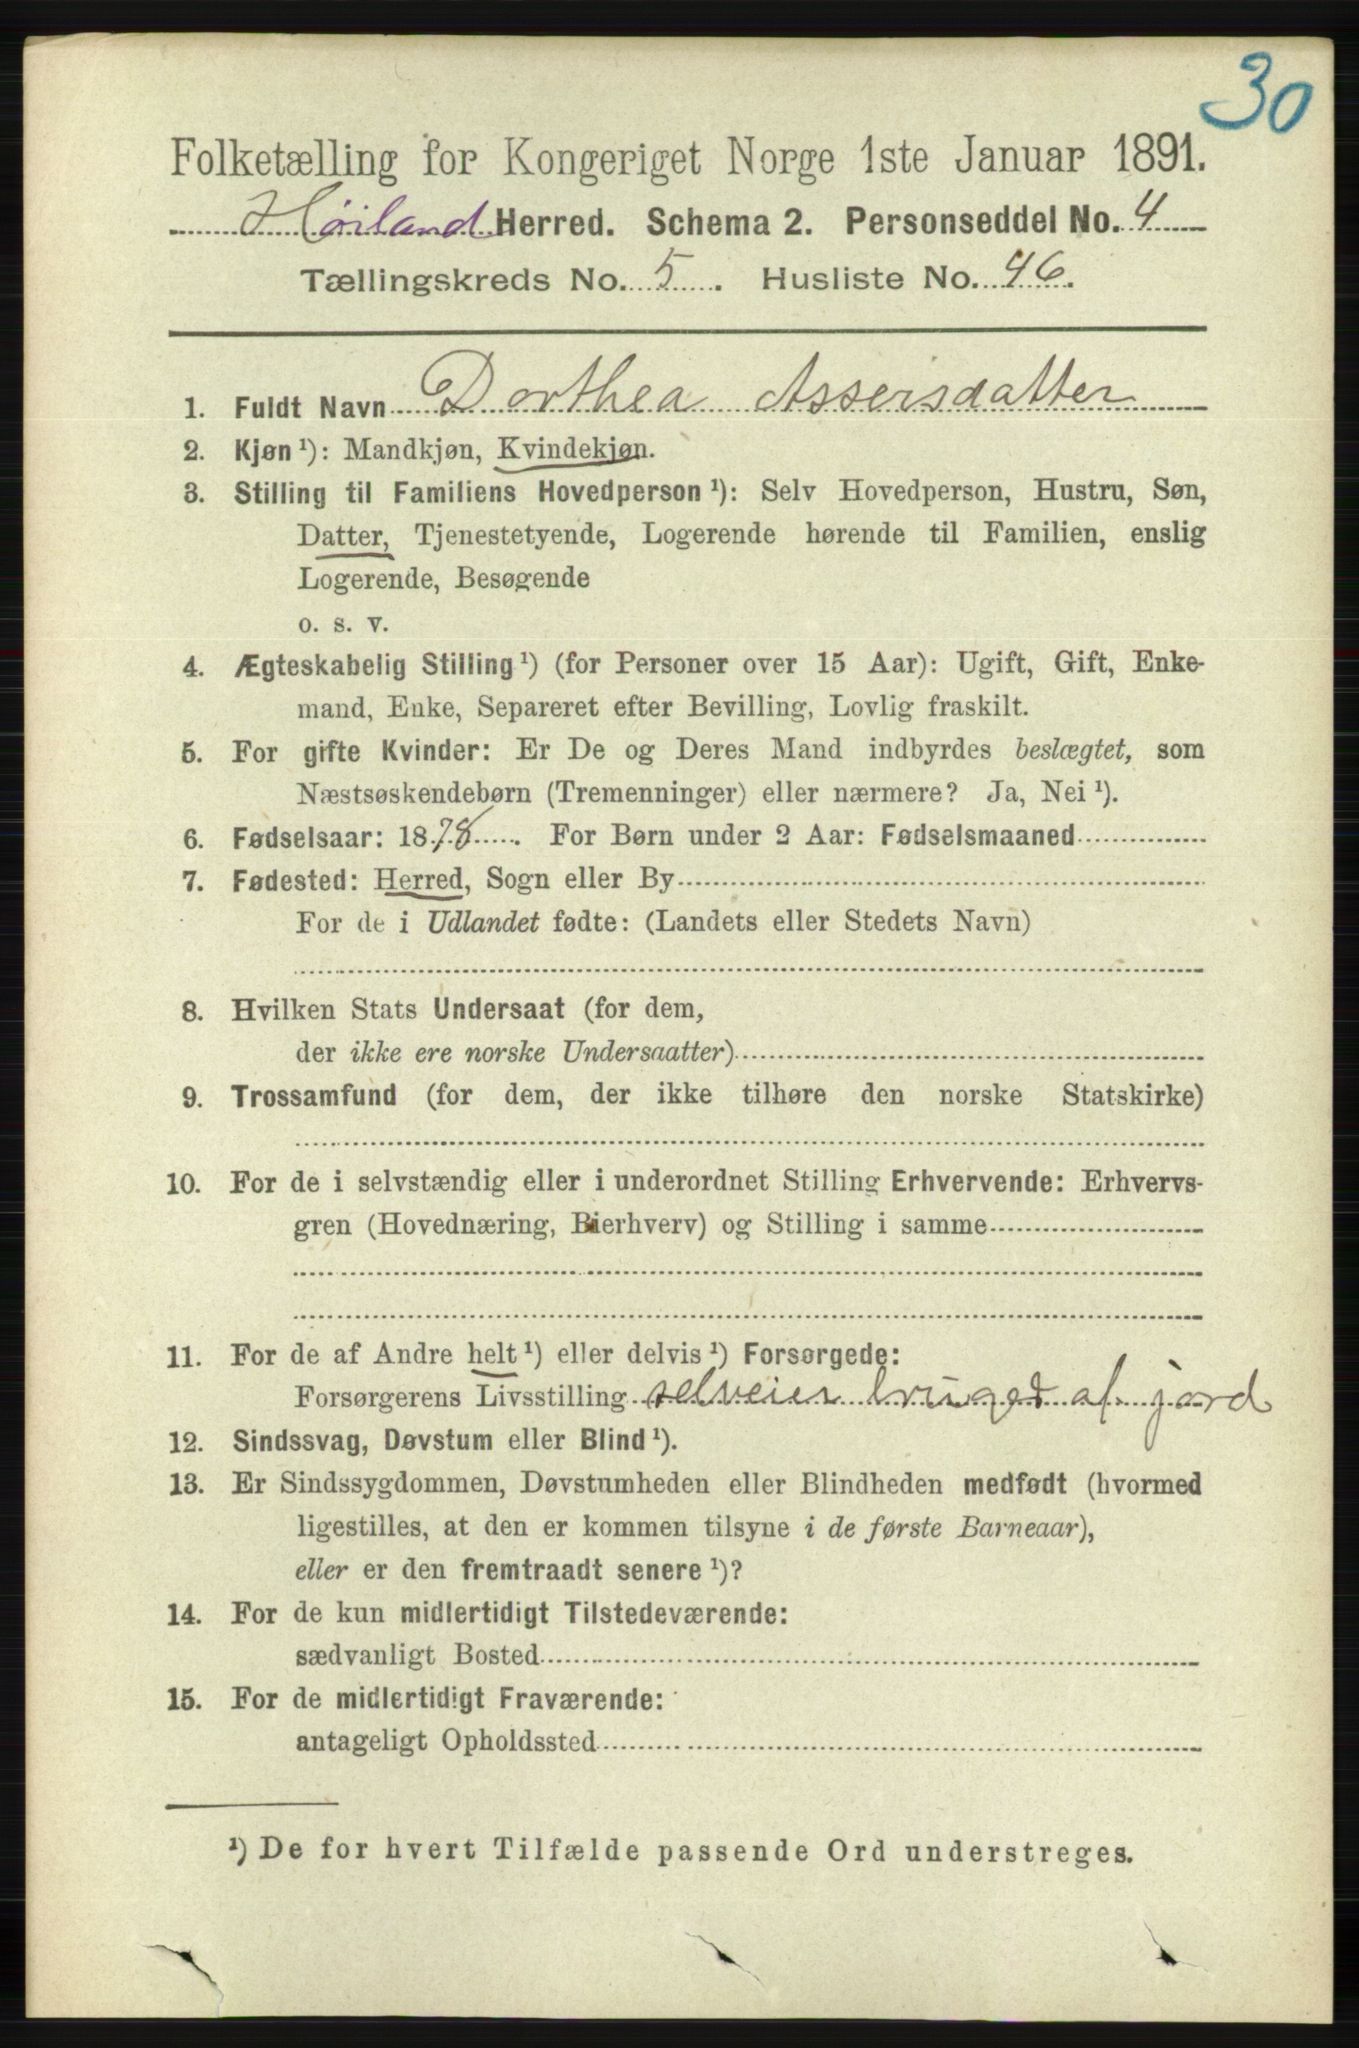 30
Folketælling for Kongeriget Norge 1ste Januar 1891.
Høiland Herred. Schema 2. Personseddel No. 4
Tællingskreds No. 5. Husliste No. 46.
1. Fuldt Navn Dorthea Asseisdatter
2. Kjøn ¹): Mandkjøn, Kvindekjøn.
3. Stilling til Familiens Hovedperson ¹): Selv Hovedperson, Hustru, Søn,
Datter, Tjenestetyende, Logerende hørende til Familien, enslig
Logerende, Besøgende
o. s. v.
4. Ægteskabelig Stilling ¹) (for Personer over 15 Aar): Ugift, Gift, Enke-
mand, Enke, Separeret efter Bevilling, Lovlig fraskilt.
5. For gifte Kvinder: Er De og Deres Mand indbyrdes beslægtet, som
Næstsøskendebørn (Tremenninger) eller nærmere? Ja, Nei ¹).
6. Fødselsaar: 1878. For Børn under 2 Aar: Fødselsmaaned
7. Fødested: Herred, Sogn eller By
For de i Udlandet fødte: (Landets eller Stedets Navn)
8. Hvilken Stats Undersaat (for dem,
der ikke ere norske Undersaatter)
9. Trossamfund (for dem, der ikke tilhøre den norske Statskirke)
10. For de i selvstændig eller i underordnet Stilling Erhvervende: Erhvervs-
gren (Hovednæring, Bierhverv) og Stilling i samme
11. For de af Andre helt ¹) eller delvis ¹) Forsørgede:
Forsørgerens Livsstilling selveier bruger af jord
12. Sindssvag, Døvstum eller Blind ¹).
13. Er Sindssygdommen, Døvstumheden eller Blindheden medfødt (hvormed
ligestilles, at den er kommen tilsyne i de første Barneaar),
eller er den fremtraadt senere ¹)?
14. For de kun midlertidigt Tilstedeværende:
sædvanligt Bosted
15. For de midlertidigt Fraværende:
antageligt Opholdssted
¹) De for hvert Tilfælde passende Ord understreges.